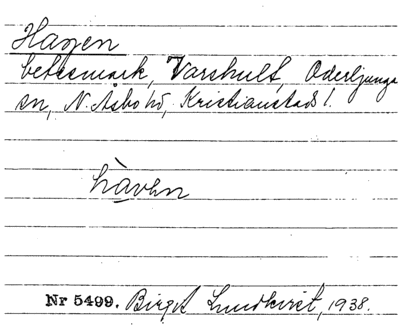 Hagen
betesmark, Varshult, Oderljunga
sn, N. Åsbo hd, Kristianstads l.
hàven
Nr 5499. Birgit Lundkvist, 1938.